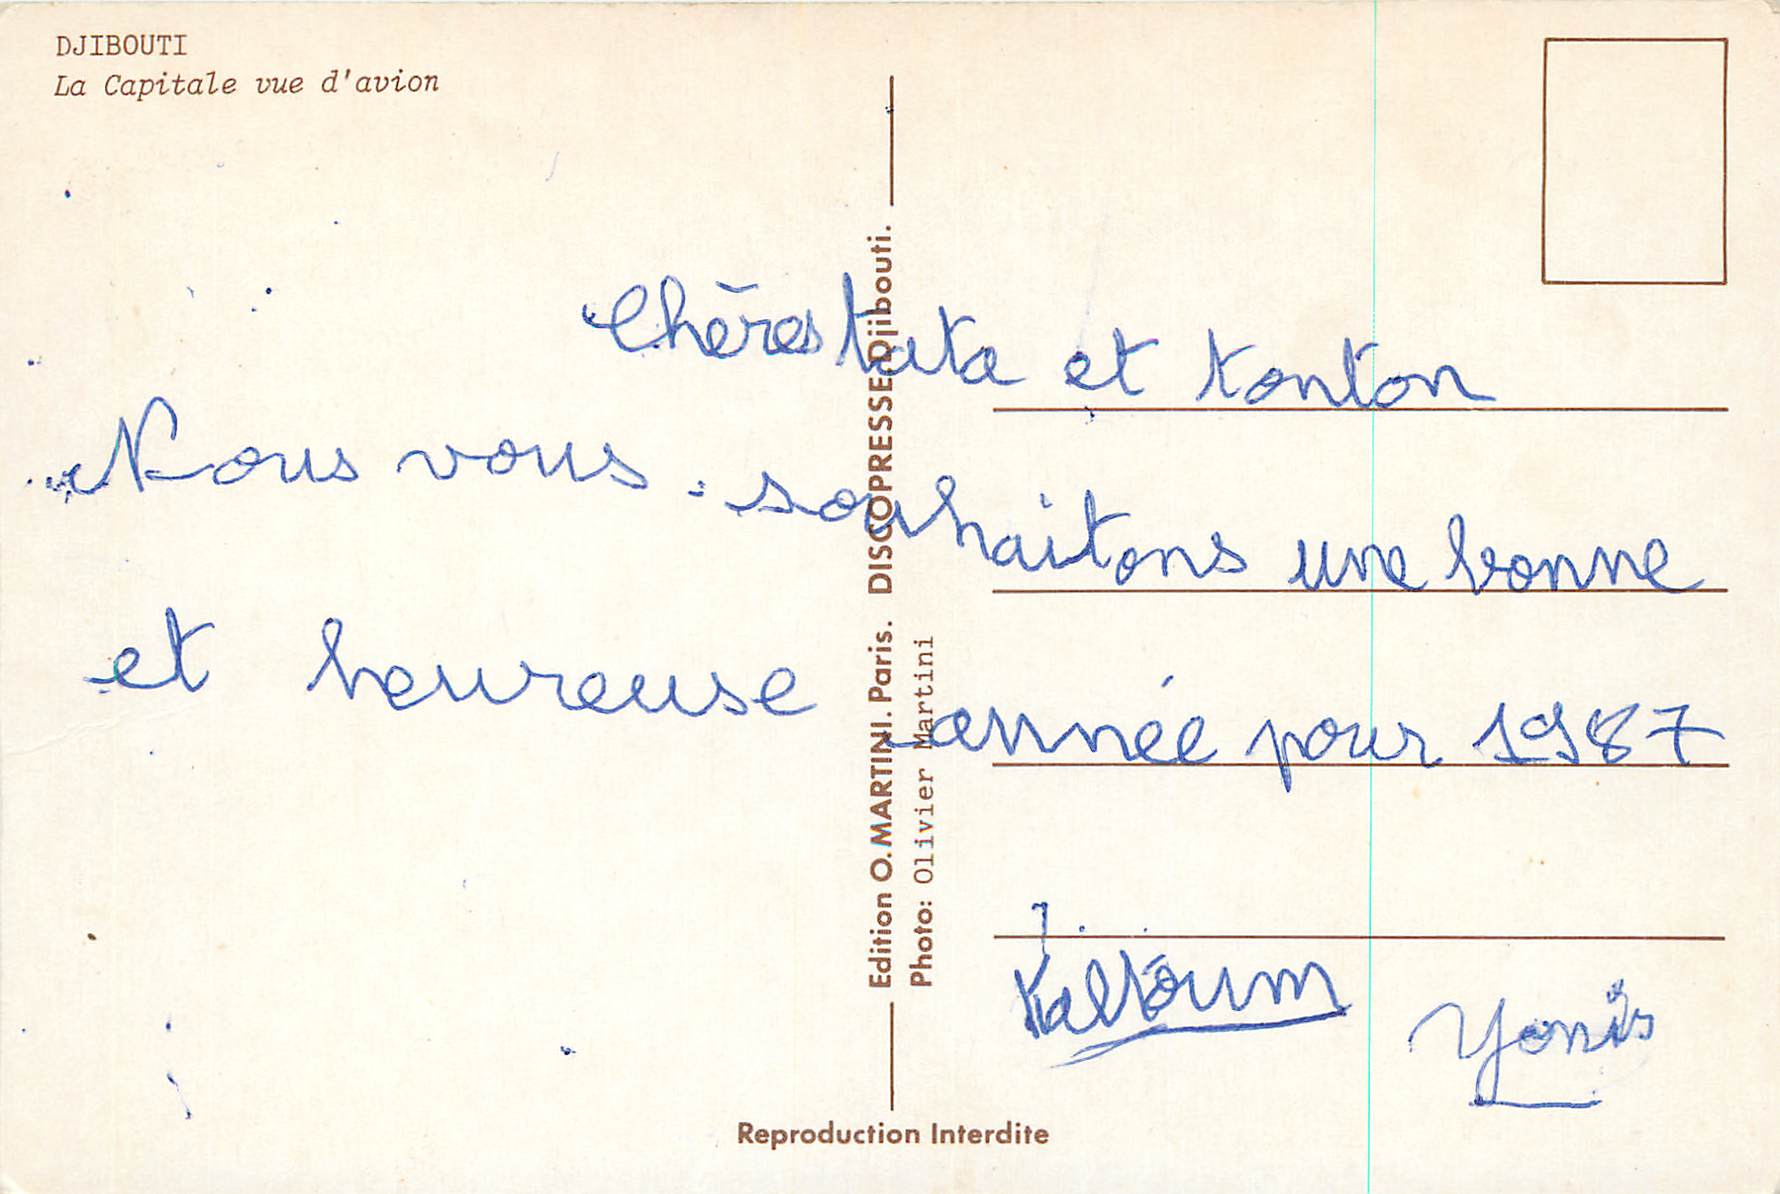 DJIBOUTI
La Capitale vue d'avion
Chères tata et tonton
Nous vous souhaitons une bonne
et heureuse année pour 1987
Kaltoum Yonis
Edition O.MARTINI. Paris. DISCOPRESSE Djibouti.
Photo: Olivier Martini
Reproduction Interdite